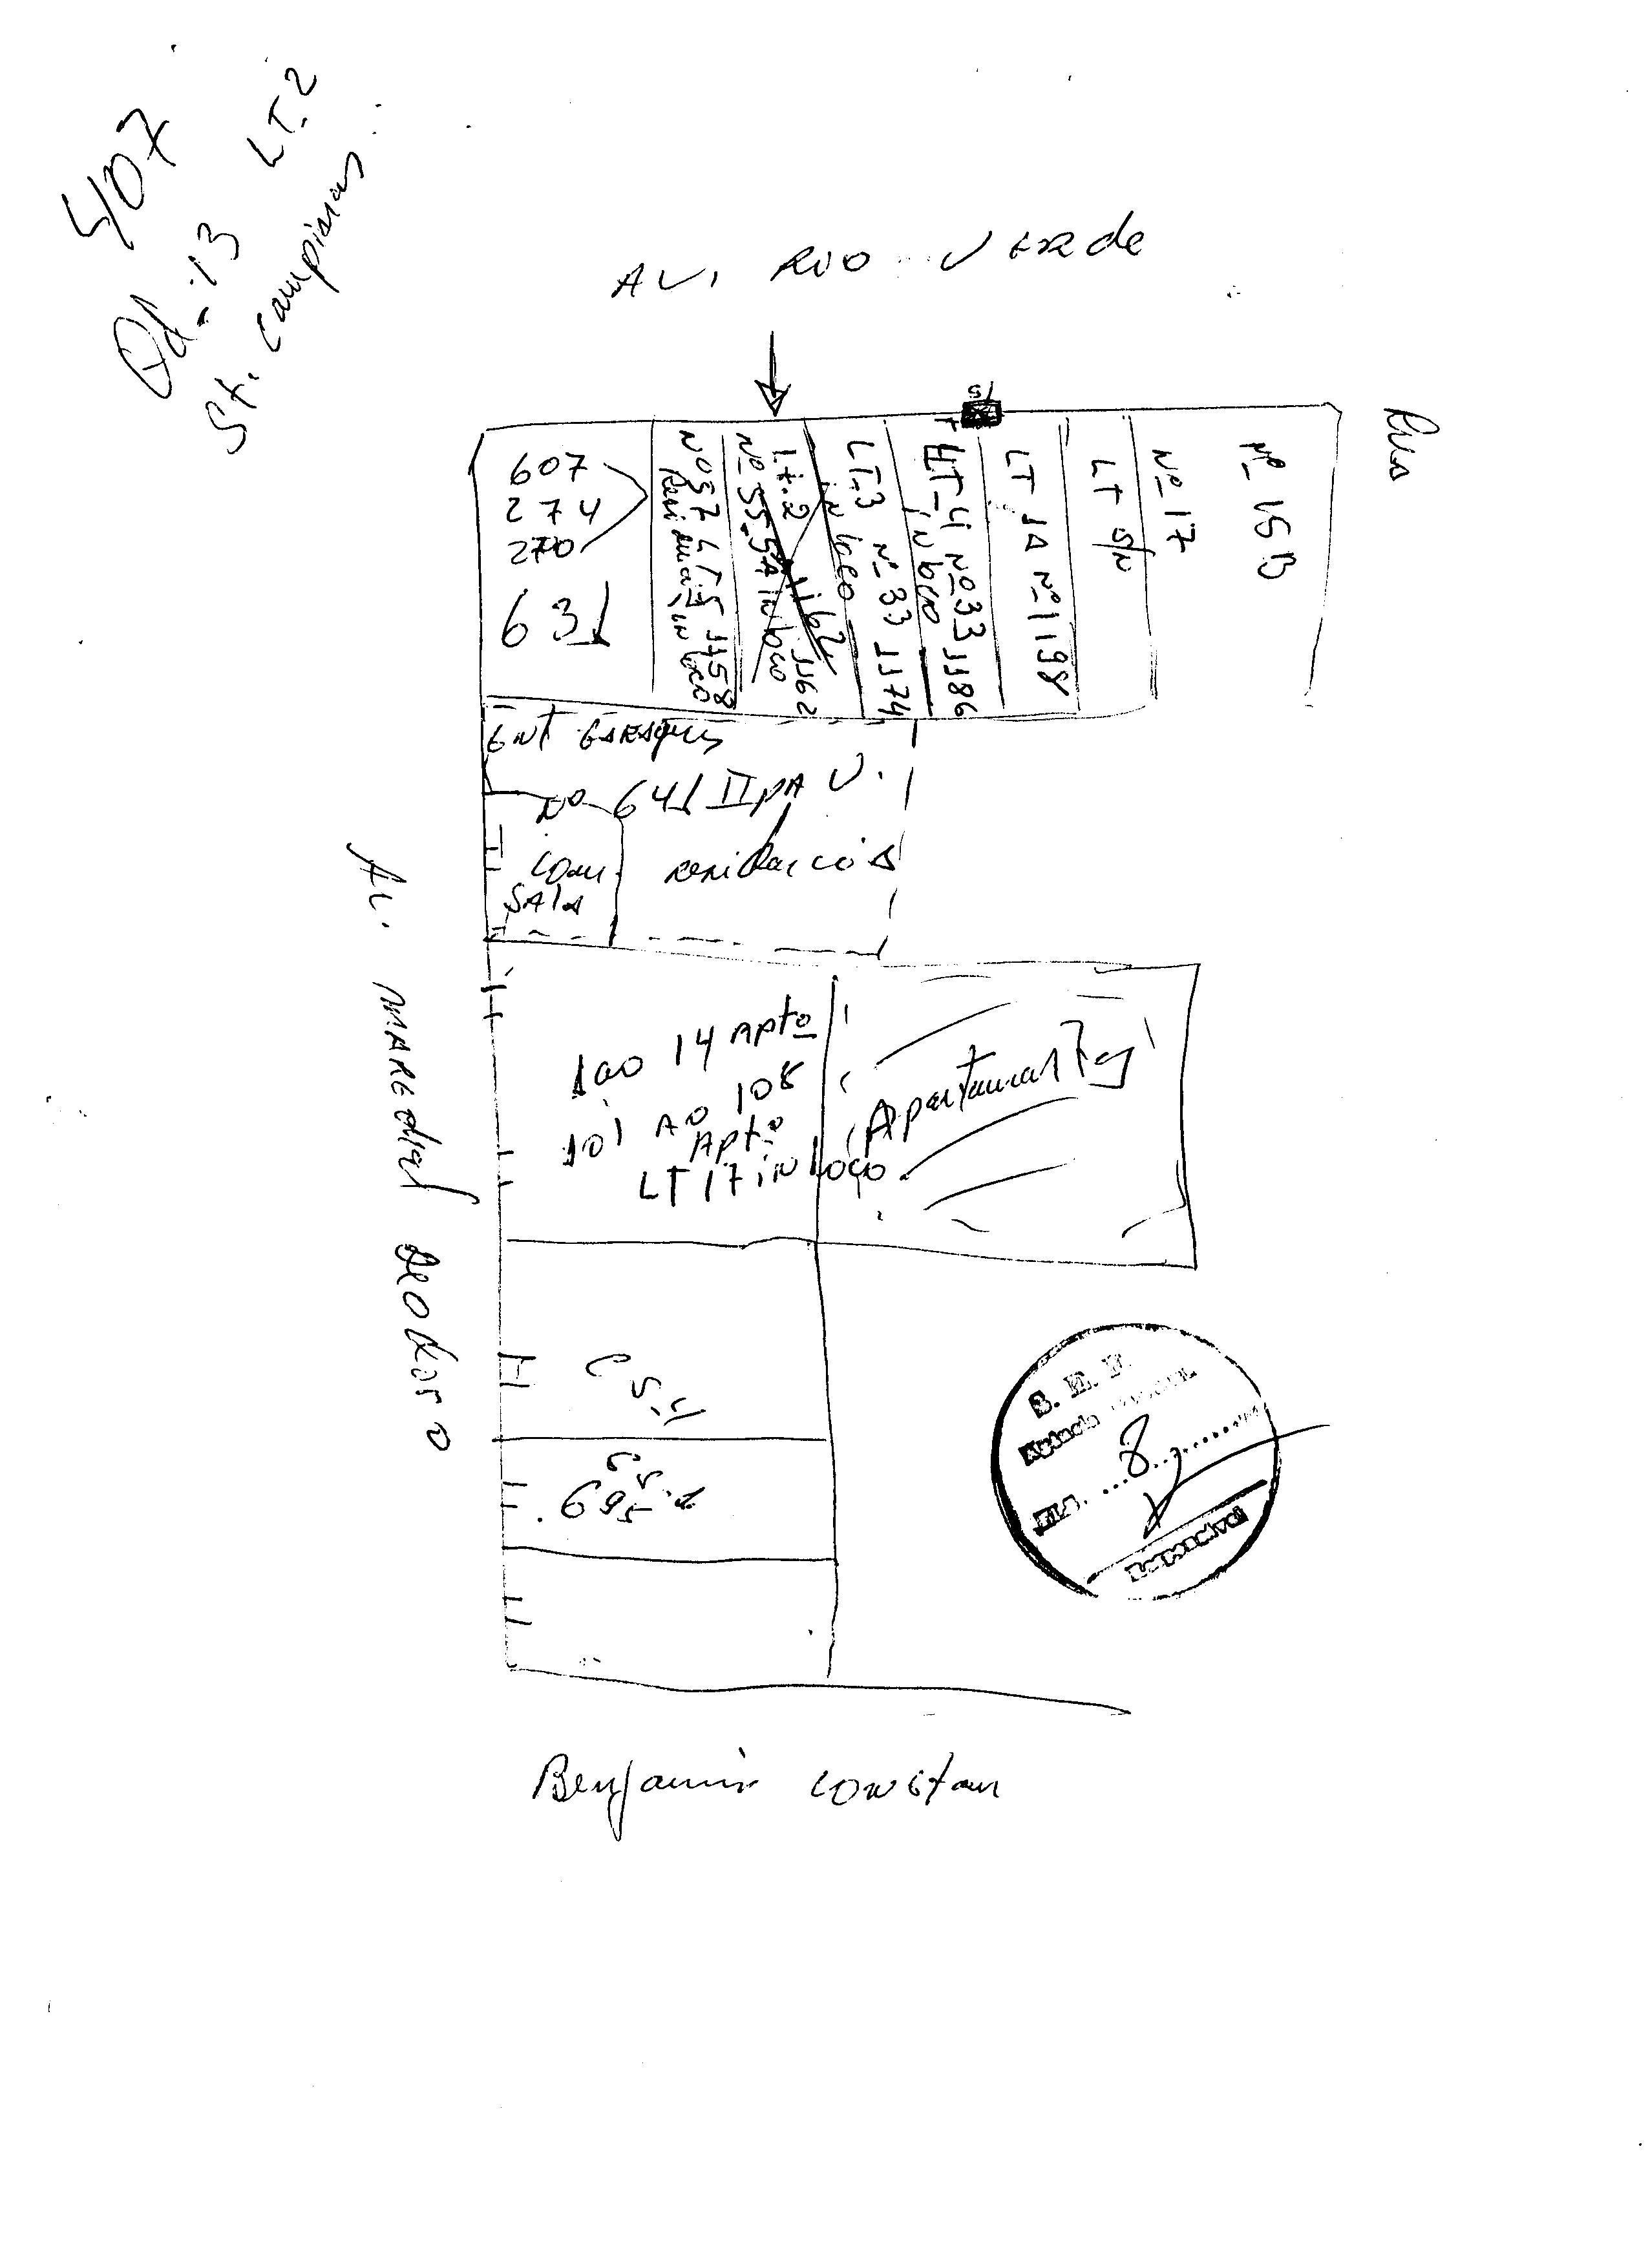 407
Qd-13 LT.2
St. Campinas
AV. RIO VERde
Rua
607
274
270
631
Nº 37 LT.5 1158
Residencia in loco
LT.2 1162
Nº 55-55A in loco 1162
LT-3 Nº 33 1174
in loco
LT-4 Nº 33 1186
in loco
LT 1A Nº 1198
LT S/N
Nº 17
Nº 15B
ENT GARAGEM
Nº 641 II PAV.
COM.
SALA
residencia
1 ao 14 APtº
101 AO 108
APtº
LT 17 iN loco
Apartamentos
AV. MARECHAL DEODORO
CS-4
CS-1
695
S. E. F.
Fls. 8
Responsável
Benjamin constan